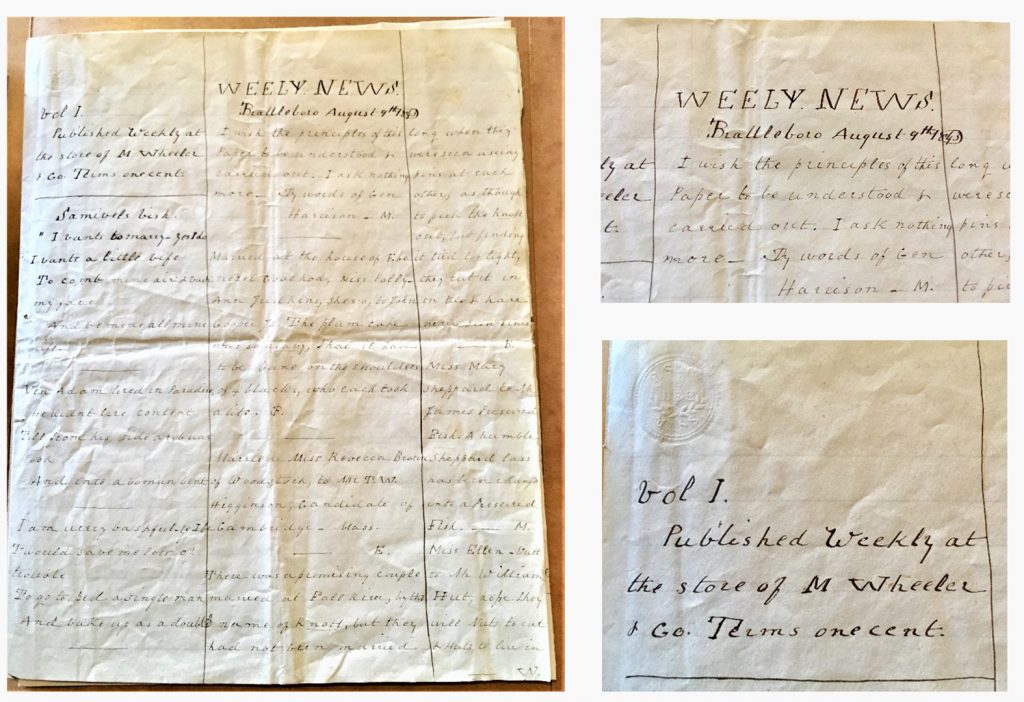 WEELY. NEWS.
Brattleboro August 9th
Vol I.
Published Weekly at
the store of M Wheeler
& Co. Terms one cent.
Samivels vish.
" I vants to marry - yes I do
I vants a little wife
To comb mine air &
my face
And be mine all mine
Ven Adam lived in
he didnt live content
Till from his side a rib was
And into a voman bent
I am werry bashful,
T'would save me lots of
trouble
To go to bed a single man
And vake up as a double
I wish the principles of this
Paper to be understood &
carried out. I ask nothing
more - Dy words of Gen
Harrison - M.
Married at the house of
Miss Polly
Ann Jenkins, to John
Cooper Jr. The plum cake
was so heavy, that it had
to be bone on the shoulders
of 4 blacks, who each took
a bite. B.
Married Miss Rebecca Brown
of Woodstock, to Mr T.W.
Higginson, Candidate of
Cambridge - Mass.
E.
There was a promising couple
married at by the
name of Knott, but they
had not been married
long when they
were seen using
pins at each
other, as though
to pick the knott
out, but finding
it tied too tightly,
they cut it in
&
never seen since
B.
Miss Mary
Sheppard to Mr
James Preserved
Fish. A humble
Sheppard lass
has been changed
into a Preserved
Fish. - M.
Miss Ellen Nutt
to Mr William
Hut, hope they
will Nuts to eat
& Huts to live in
N.
WEELY. NEWS.
Brattleboro August 9th
ly at
eeler
t.
I wish the principles of this
Paper to be understood &
carried out. I ask nothing
more - Dy words of Gen
Harrison - M.
long
were
pins
other,
to
Vol I.
Published Weekly at
the store of M Wheeler
& Co. Terms one cent.